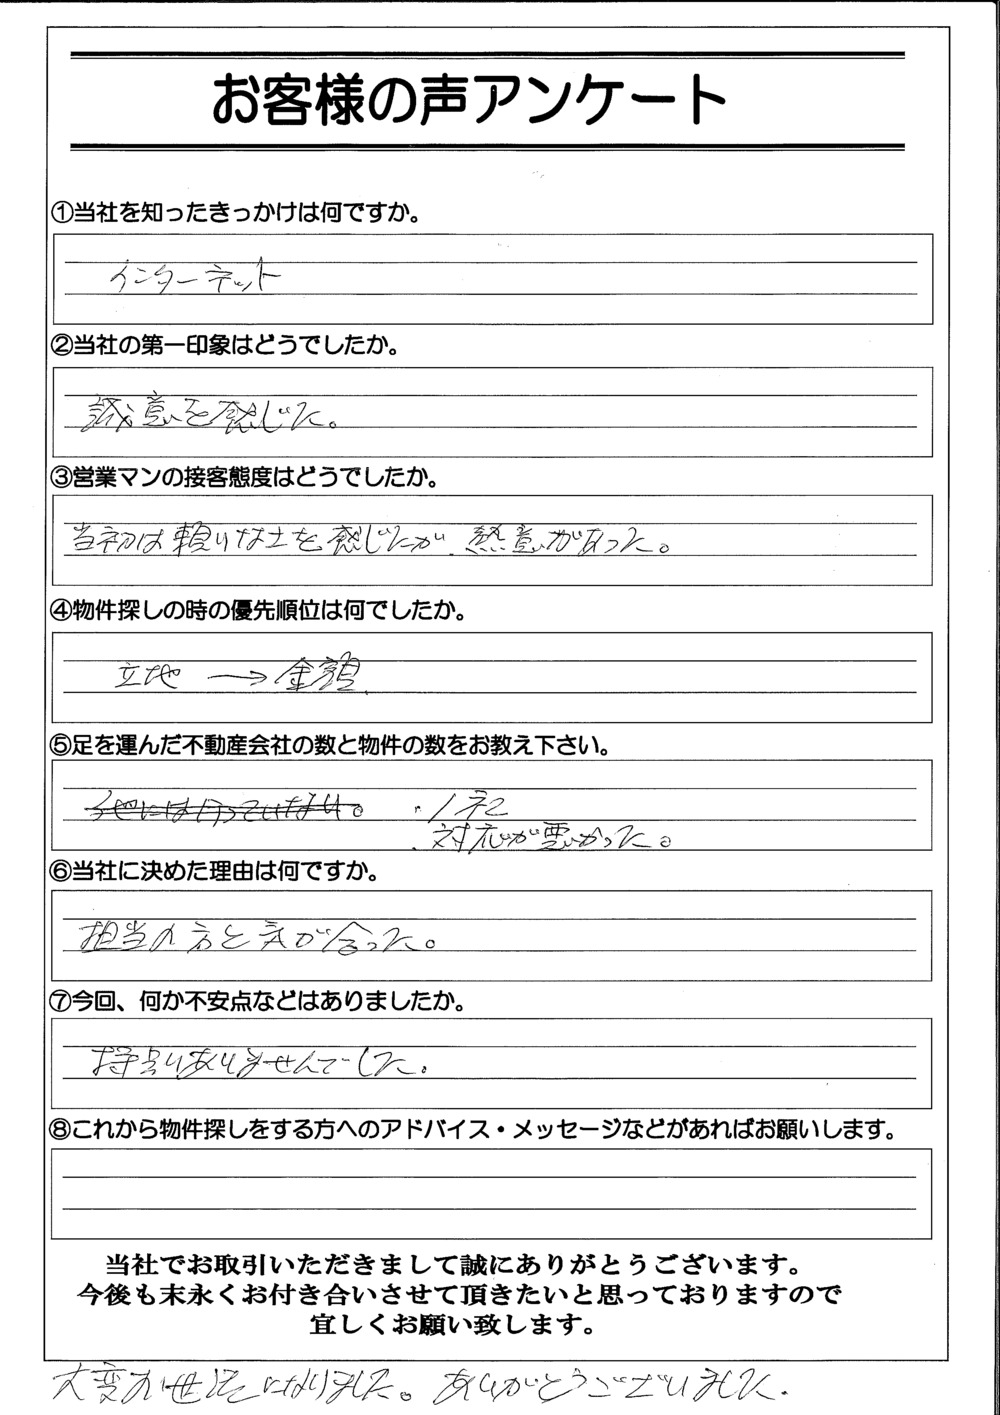 お客様の声アンケート
①当社を知ったきっかけは何ですか。
インターネット
②当社の第一印象はどうでしたか。
誠意を感じた。
③営業マンの接客態度はどうでしたか。
当初は頼りなさを感じたが、熱意があった。
④物件探しの時の優先順位は何でしたか。
立地 → 金額
⑤足を運んだ不動産会社の数と物件の数をお教え下さい。
他には行っていない。 ・1社
対応が悪かった。
⑥当社に決めた理由は何ですか。
担当の方と気が合った。
⑦今回、何か不安点などはありましたか。
特にありませんでした。
⑧これから物件探しをする方へのアドバイス・メッセージなどがあればお願いします。
当社でお取引いただきまして誠にありがとうございます。
今後も末永くお付き合いさせて頂きたいと思っておりますので
宜しくお願い致します。
大変お世話になりました。ありがとうございました.